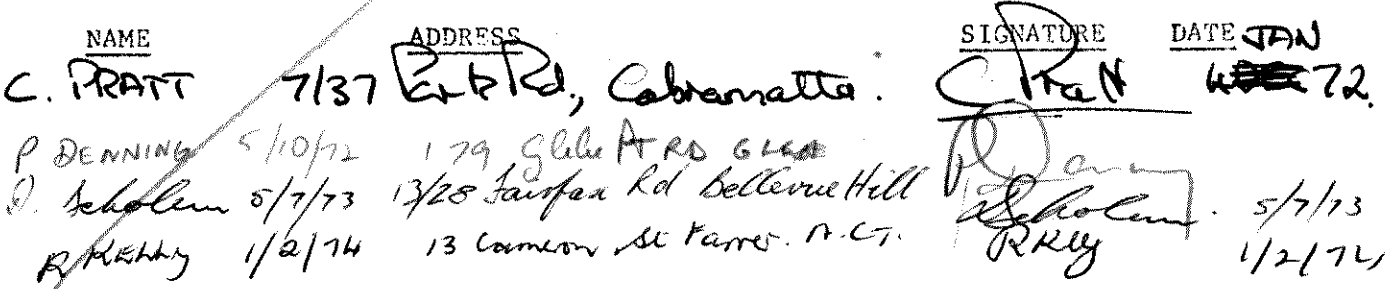 NAME ADDRESS SIGNATURE DATE JAN
C. PRATT 7/37 Park Rd, Cabramatta. C Pratt 72.
P DENNING 5/10/72 179 Glebe Pt RD GLEBE
D. Scholem 5/7/73 13/28 Fairfax Rd Bellevue Hill DScholem. 5/7/73
R KELLY 1/2/74 13 Cameron St Farrer. A.C.T. RKelly 1/2/74